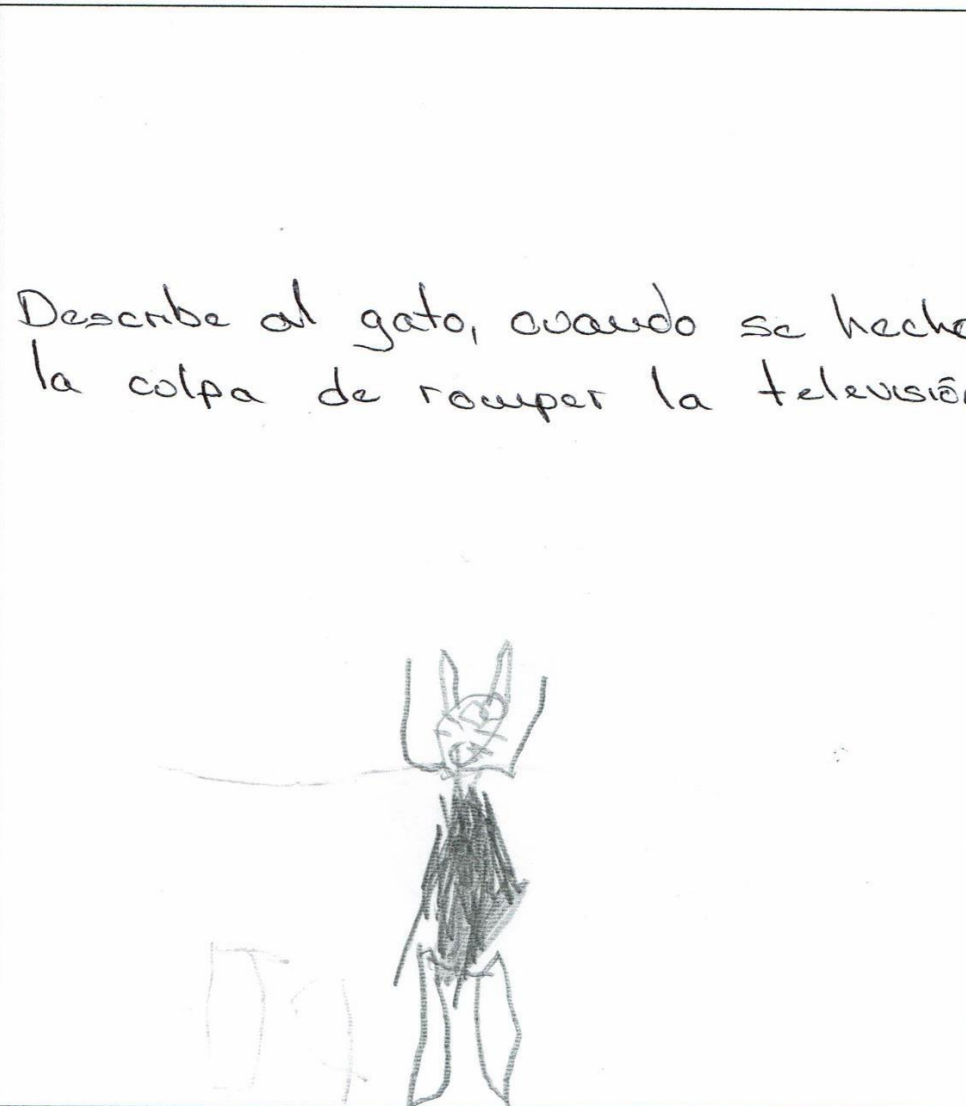 Describe al gato, cuando se hecha
la colpa de romper la televisión